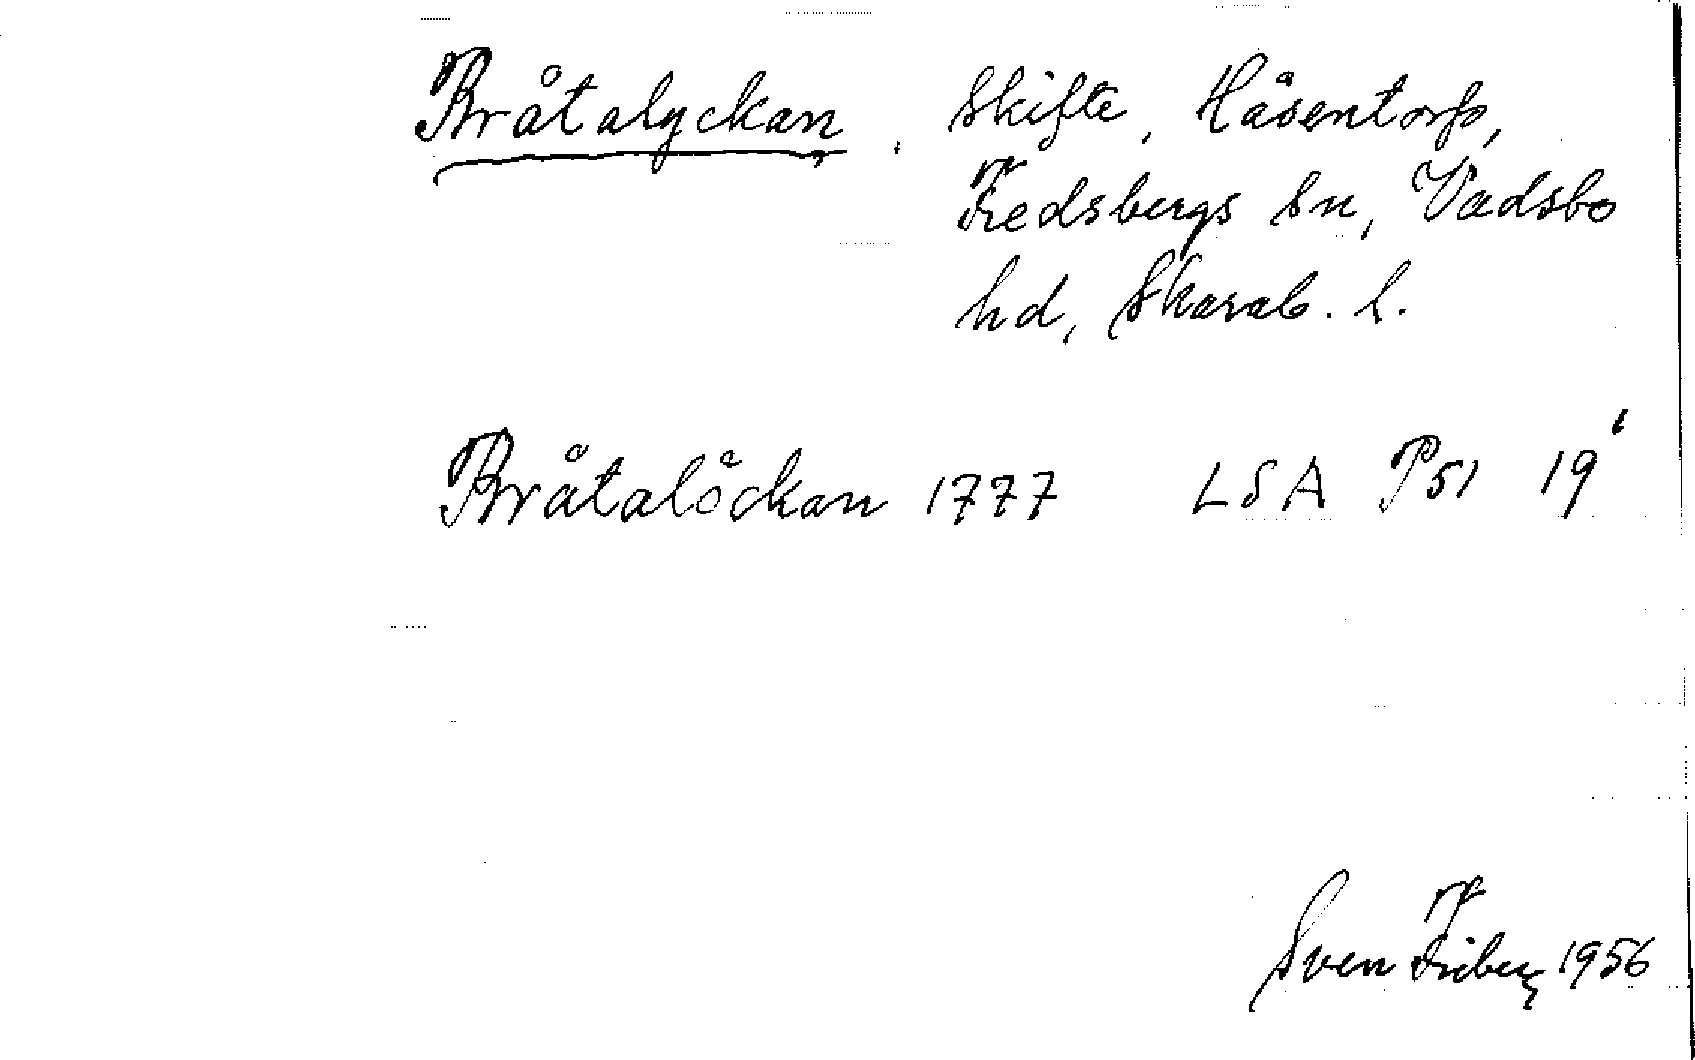 Bråtalyckan, Skifte, Håsentorp,
Fredsbergs sn, Vadsbo
hd, Skarab. l.
Bråtalöckan 1777 LSA P51 19¹
Sven Friberg 1956